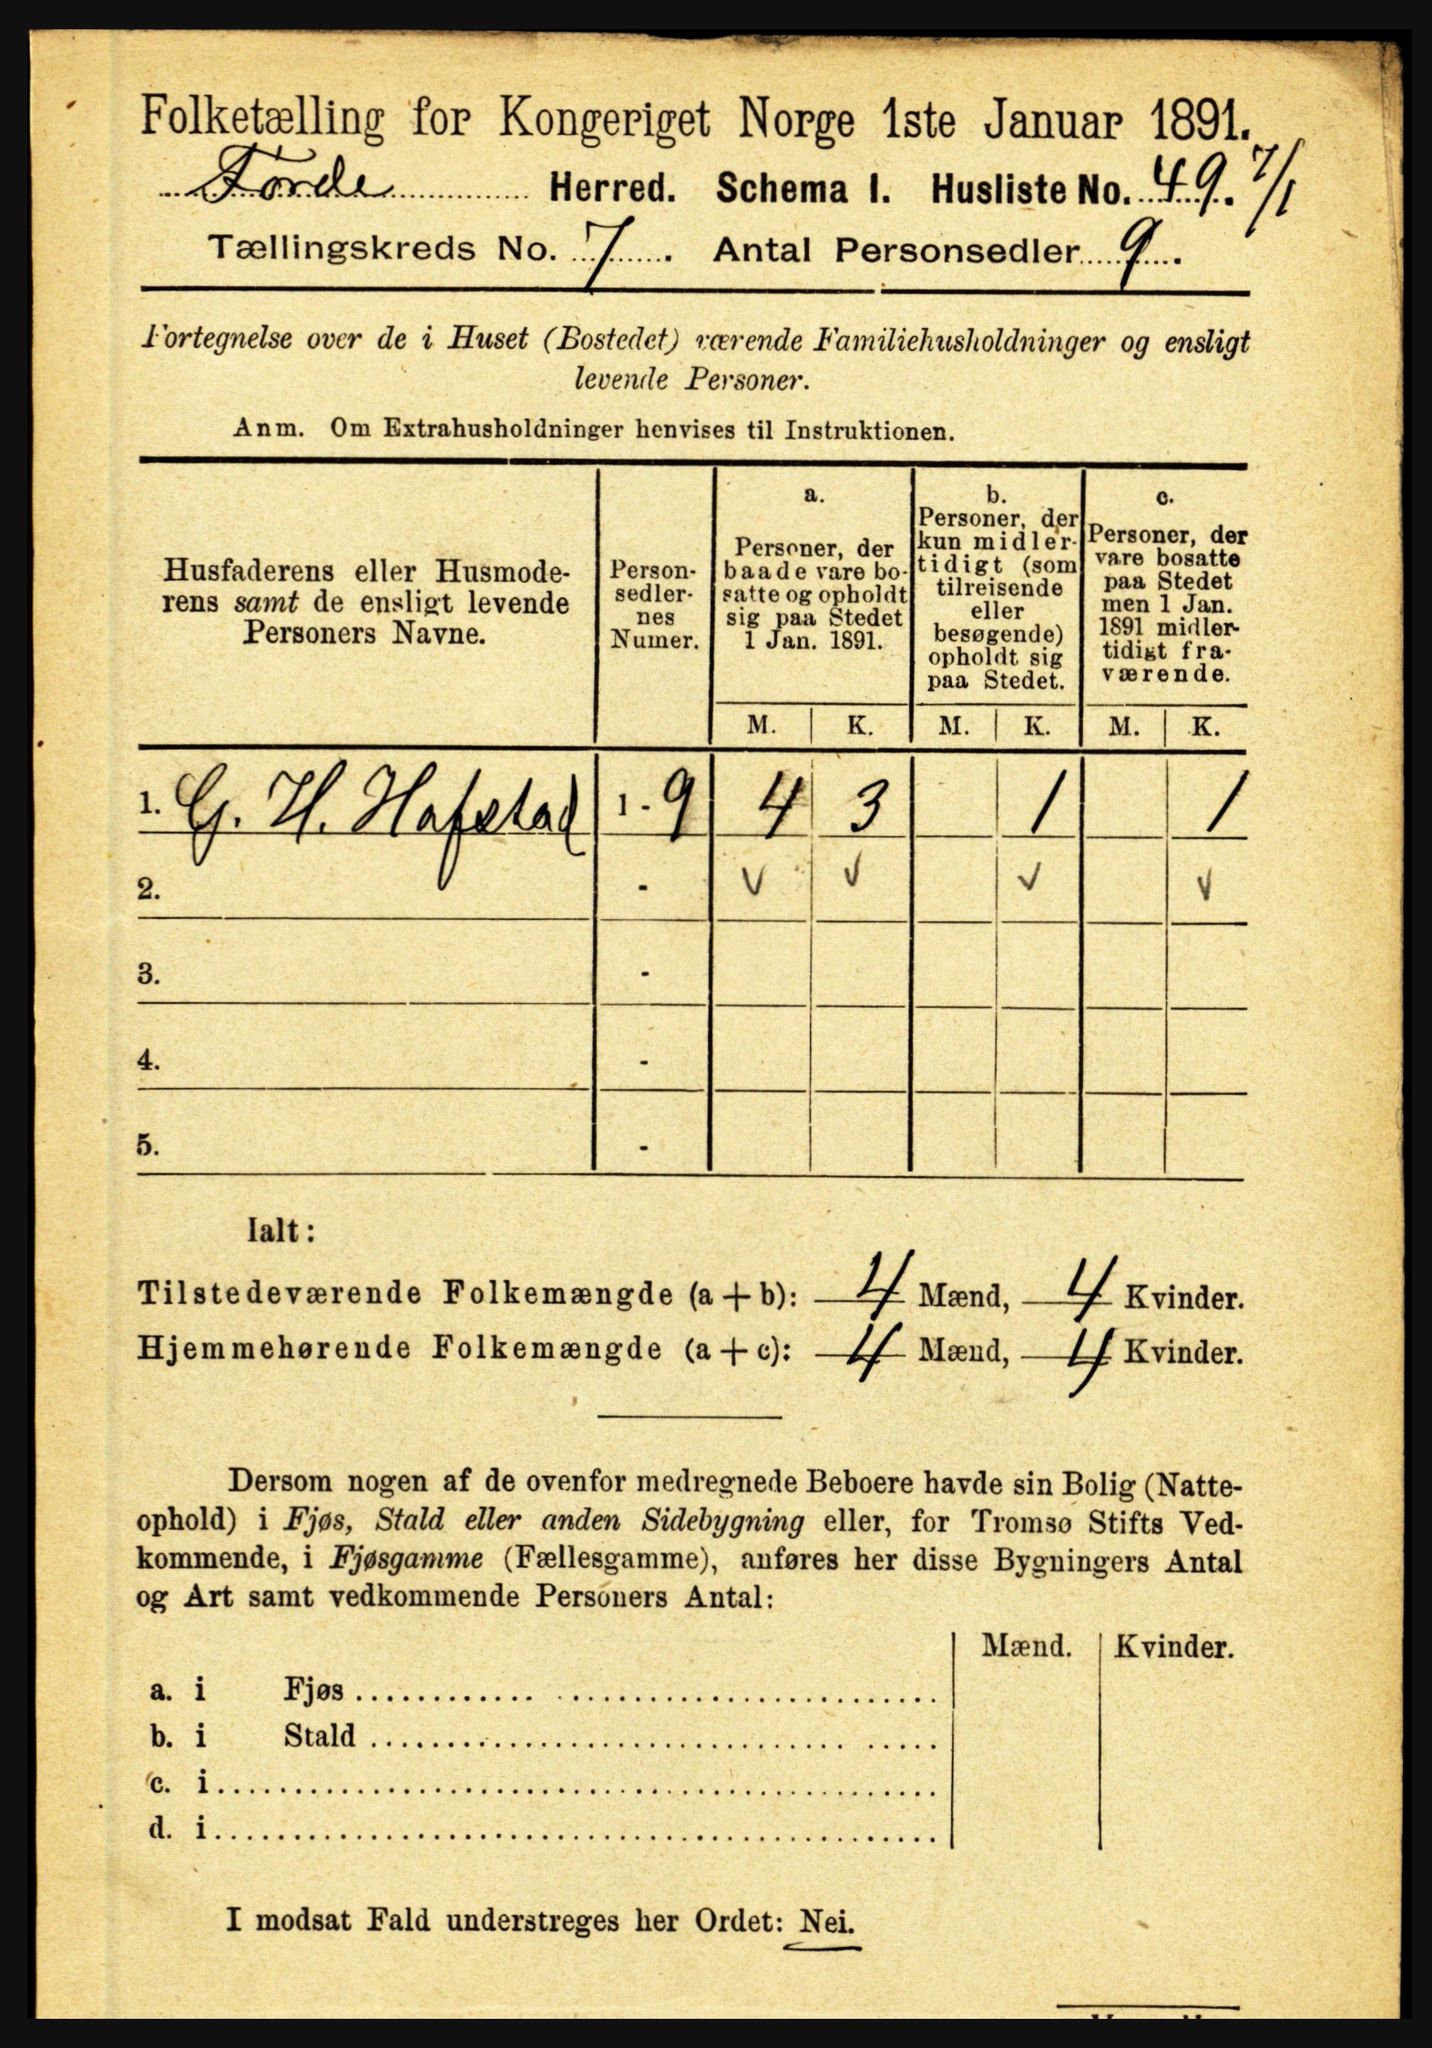 Folketælling for Kongeriget Norge 1ste Januar 1891.
Førde Herred. Schema I. Husliste No. 49. 7/1
Tællingskreds No. 7. Antal Personsedler 9.
Fortegnelse over de i Huset (Bostedet) værende Familiehusholdninger og ensligt
levende Personer.
Anm. Om Extrahusholdninger henvises til Instruktionen.
Husfaderens eller Husmode-
rens samt de ensligt levende
Personers Navne.
Person-
sedler-
nes
Numer.
a.
Personer, der
baade vare bo-
satte og opholdt
sig paa Stedet
1 Jan. 1891.
b.
Personer, der
kun midler-
tidigt (som
tilreisende
eller
besøgende)
opholdt sig
paa Stedet.
c.
Personer, der
vare bosatte
paa Stedet
men 1 Jan.
1891 midler-
tidigt fra-
værende.
M. K. M. K. M. K.
1. G. H. Hafstad 1 - 9 4 3 1 1
2. - v v v v
3. -
4. -
5. -
Ialt:
Tilstedeværende Folkemængde (a + b): 4 Mænd, 4 Kvinder.
Hjemmehørende Folkemængde (a + c): 4 Mænd, 4 Kvinder.
Dersom nogen af de ovenfor medregnede Beboere havde sin Bolig (Natte-
ophold) i Fjøs, Stald eller anden Sidebygning eller, for Tromsø Stifts Ved-
kommende, i Fjøsgamme (Fællesgamme), anføres her disse Bygningers Antal
og Art samt vedkommende Personers Antal:
Mænd. Kvinder.
a. i Fjøs
b. i Stald
c. i
d. i
I modsat Fald understreges her Ordet: Nei.